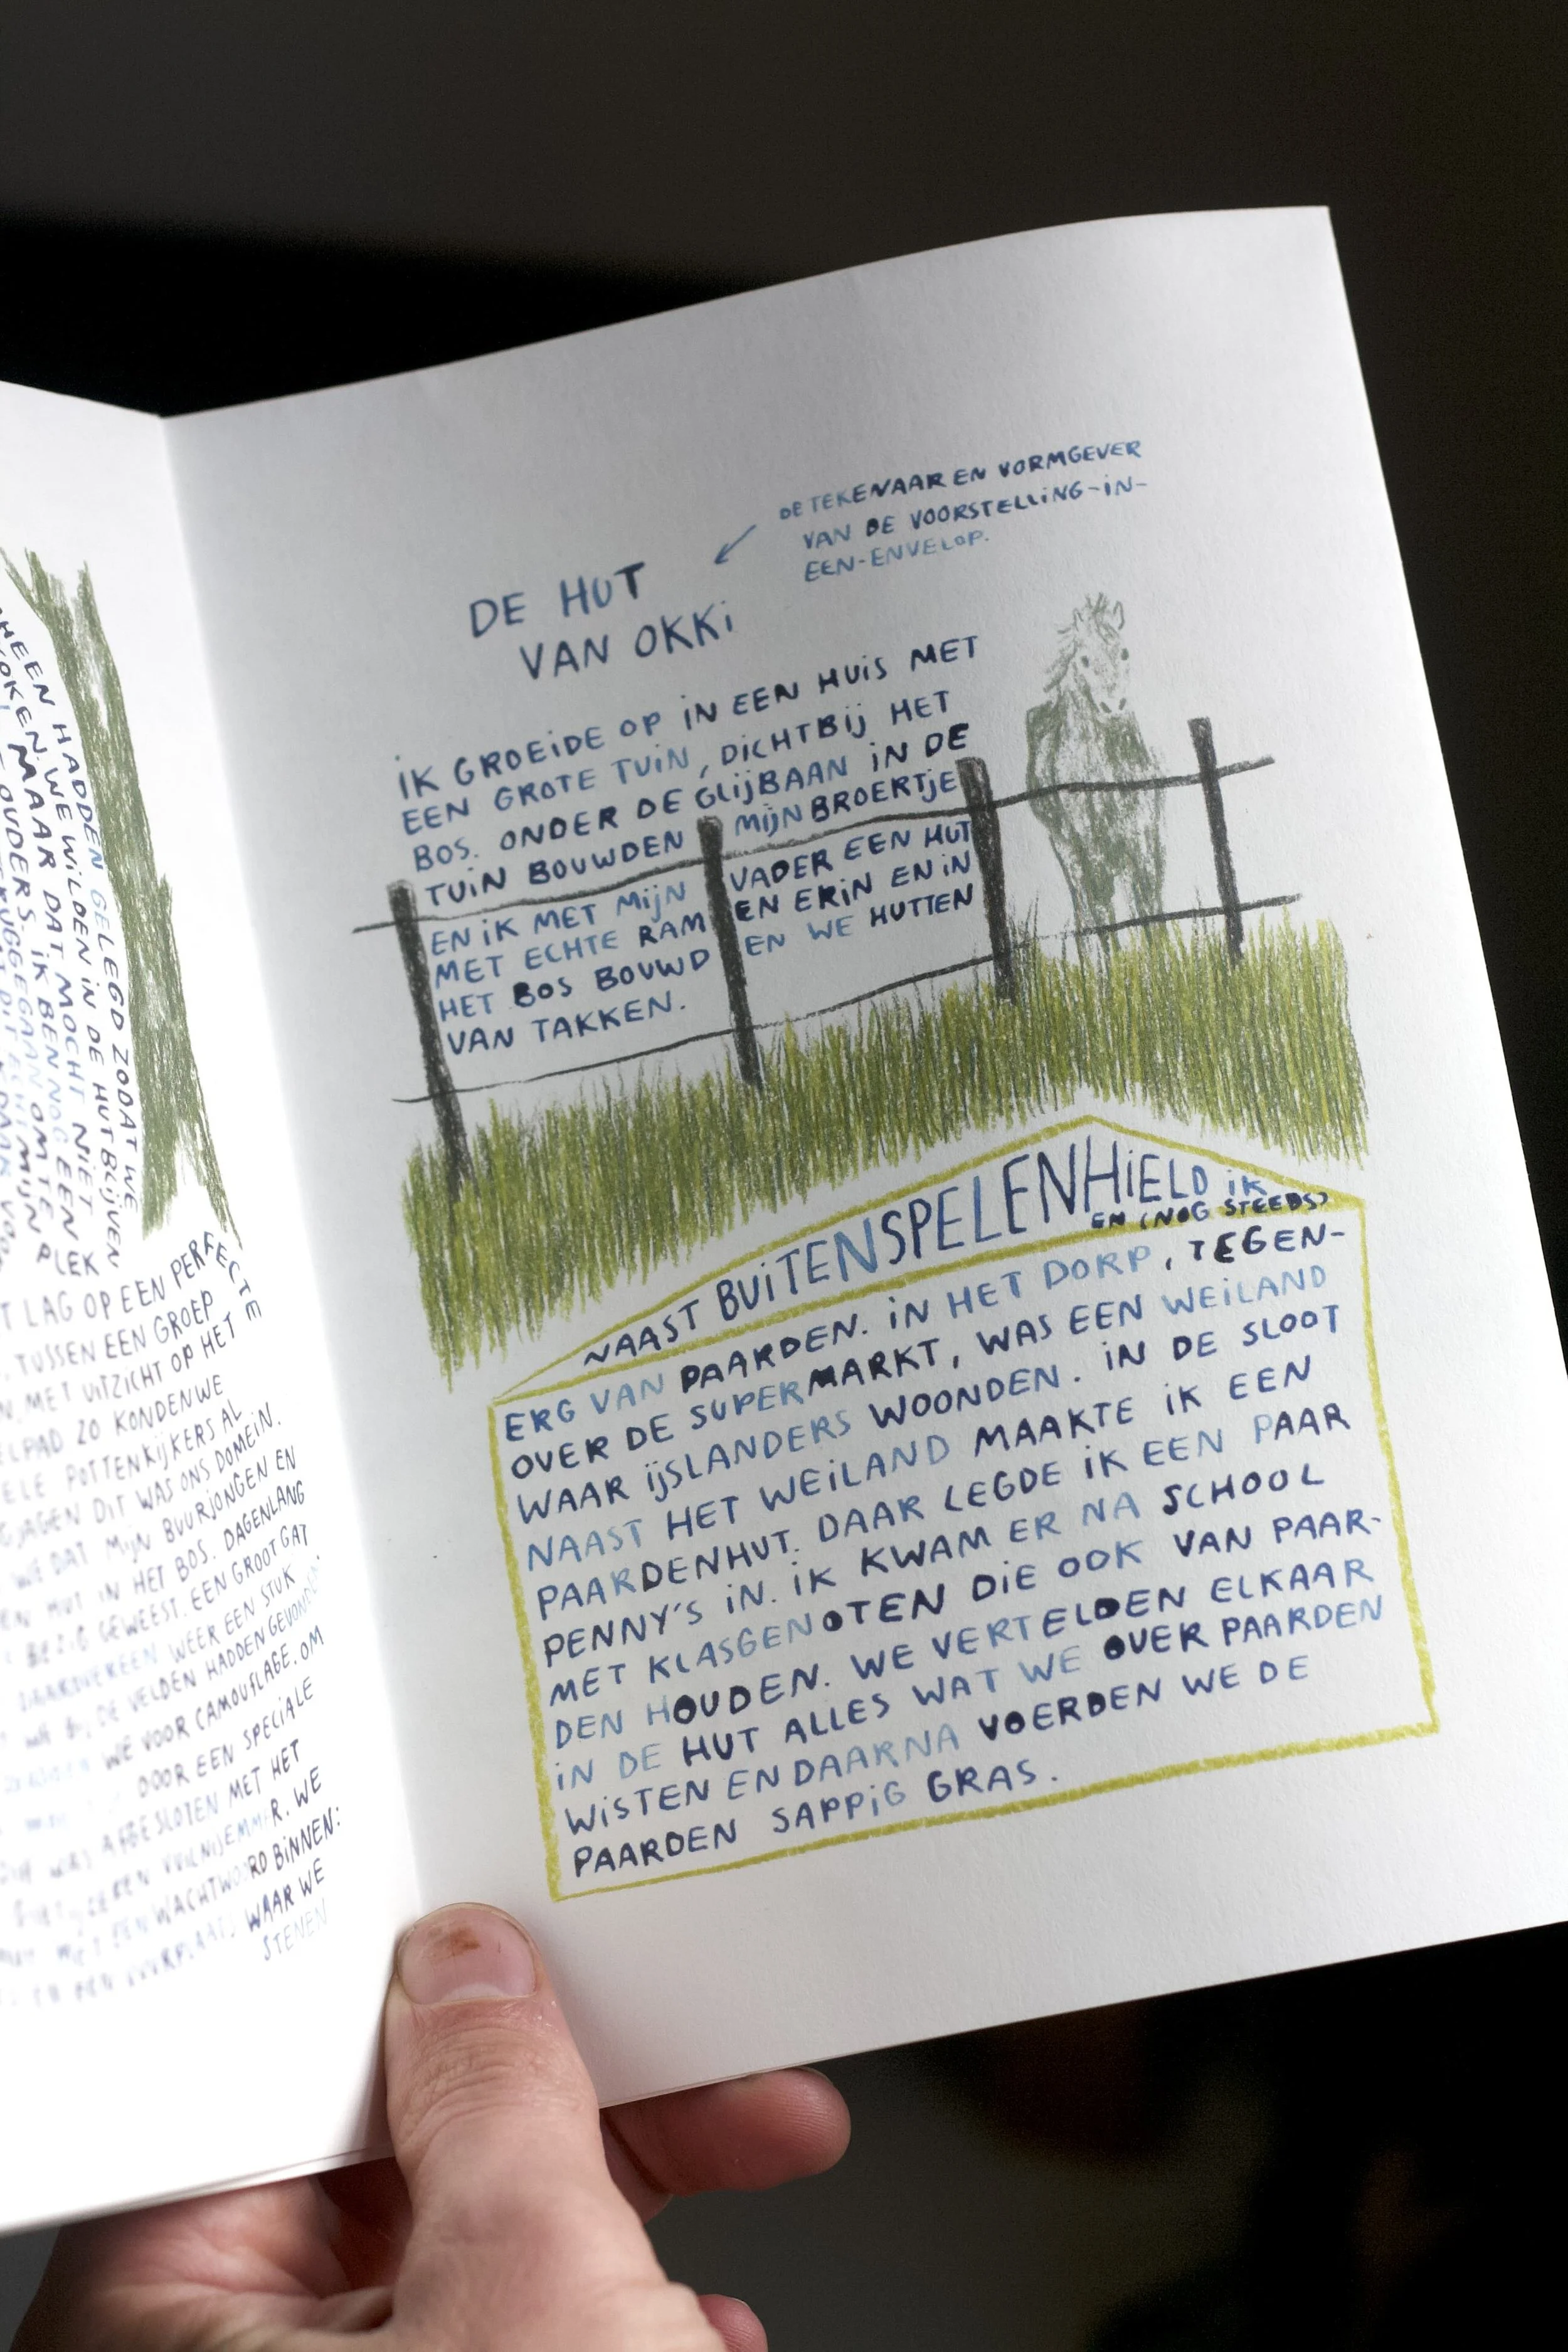 HEEN HADDEN GELEGD ZODAT WE
WE WILDEN IN DE HUT BLIJVEN
MAAR DAT MOCHT NIET
OUDERS. IK BEN NOG EEN
OM TE
MIJN PLEK
LAG OP EEN PERFECTE
TUSSEN EEN GROEP
MET UITZICHT OP HET
ZO KONDEN WE
POTTENKIJKERS AL
JAGEN DIT WAS ONS DOMEIN.
WE DAT MIJN BUURJONGEN EN
HUT IN HET BOS. DAGENLANG
BEZIG GEWEEST. EEN GROOT GAT
WEER EEN STUK
DE VELDEN HADDEN GEVONDEN
WE VOOR CAMOUFLAGE. OM
DOOR EEN SPECIALE
WAS AFGESLOTEN MET HET
VUILNISEMMER. WE
EEN WACHTWOORD BINNEN:
WAAR WE
STENEN
DE TEKENAAR EN VORMGEVER
VAN DE VOORSTELLING-IN-
EEN-ENVELOP.
DE HUT
VAN OKKI
IK GROEIDE OP IN EEN HUIS MET
EEN GROTE TUIN, DICHTBIJ HET
BOS. ONDER DE GLIJBAAN IN DE
TUIN BOUWDEN MIJN BROERTJE
EN IK MET MIJN VADER EEN HUT
MET ECHTE RAM EN ERIN EN IN
HET BOS BOUWD EN WE HUTTEN
VAN TAKKEN.
NAAST BUITENSPELEN HIELD IK
EN (NOG STEEDS)
ERG VAN PAARDEN. IN HET DORP, TEGEN-
OVER DE SUPERMARKT, WAS EEN WEILAND
WAAR IJSLANDERS WOONDEN. IN DE SLOOT
NAAST HET WEILAND MAAKTE IK EEN
PAARDENHUT. DAAR LEGDE IK EEN PAAR
PENNY'S IN. IK KWAM ER NA SCHOOL
MET KLASGENOTEN DIE OOK VAN PAAR-
DEN HOUDEN. WE VERTELDEN ELKAAR
IN DE HUT ALLES WAT WE OVER PAARDEN
WISTEN EN DAARNA VOERDEN WE DE
PAARDEN SAPPIG GRAS.